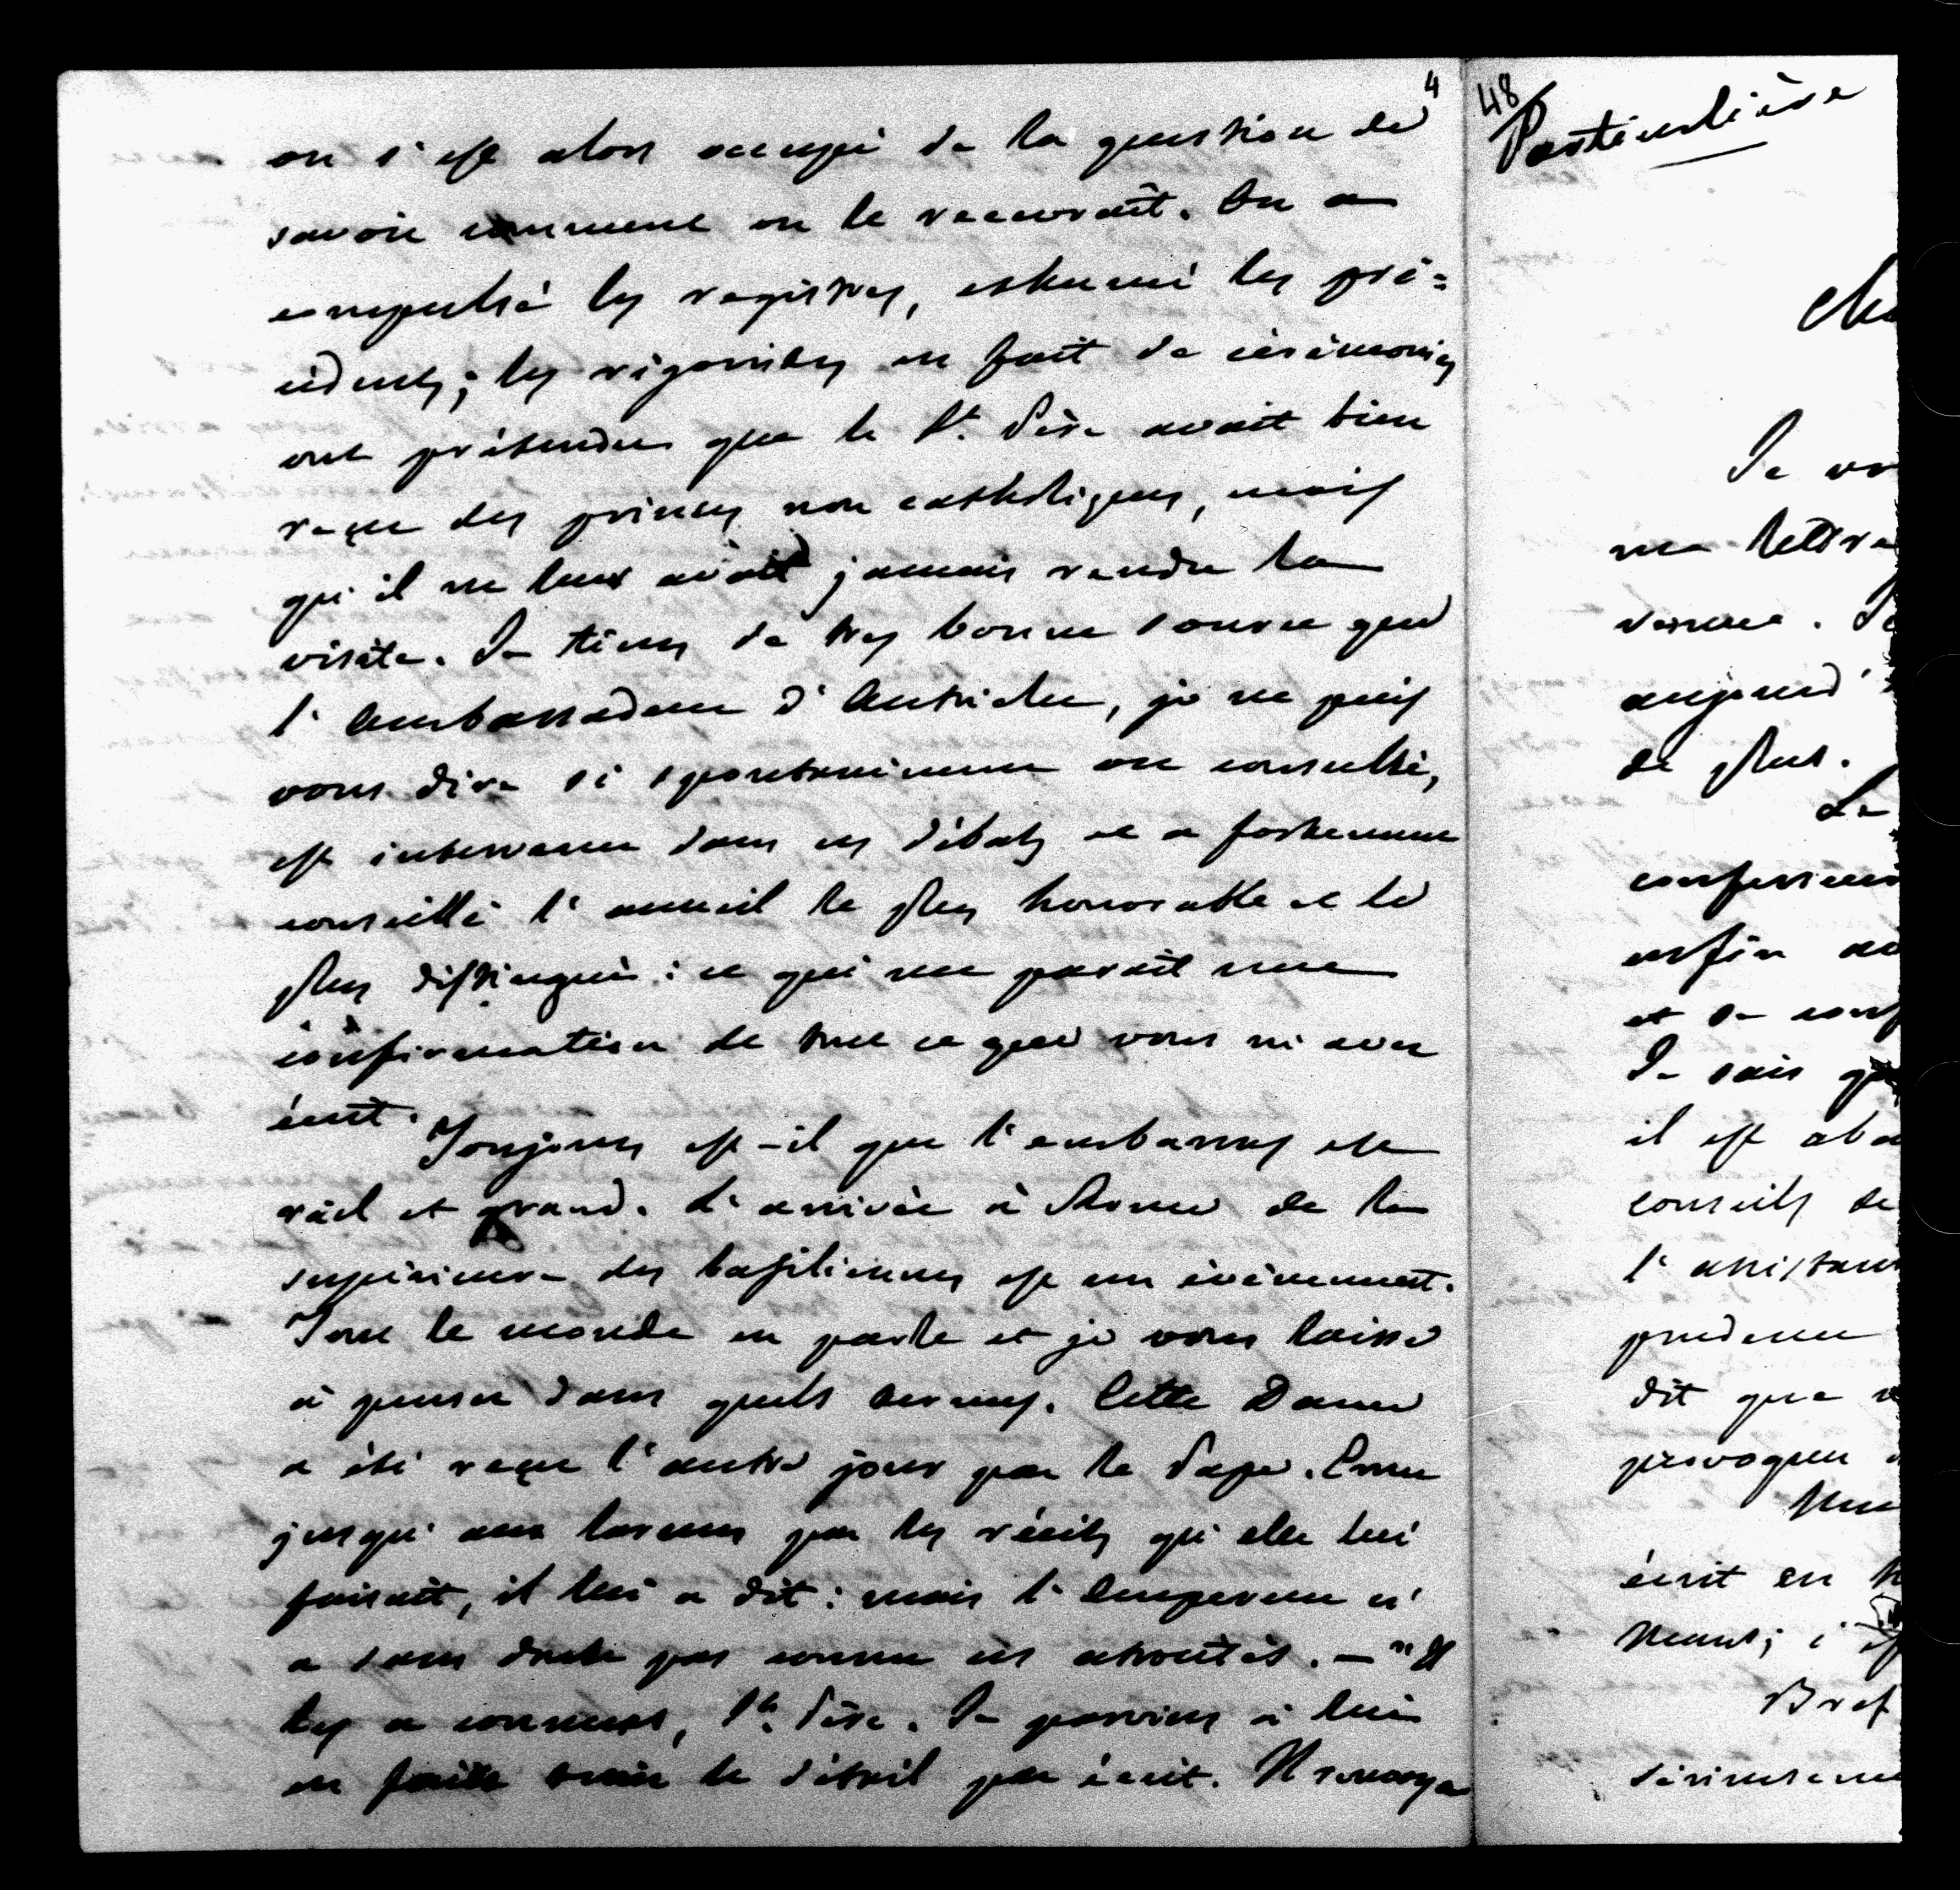 4
on s'est alors occupé de la question de
savoir comment on le recevrait. On a
compulsé les registres, exhumé les pré=
cédents; les rigoristes en fait de cérémonies
ont prétendu que le St. Père avait bien
reçu des princes non catholiques, mais
qu'il ne leur avait jamais rendu la
visite. Je tiens de très bonne source que
l'Ambassadeur d'Autriche, je ne puis
vous dire si spontanément ou consulté,
est intervenu dans ces débats et a fortement
conseillé l'accueil le plus honorable et le
plus distingué: ce qui me paraît une
confirmation de tout ce que vous m'avez
écrit.
Toujours est-il que l'embarras est
réel et grand. L'arrivée à Rome de la
supérieure des basiliennes est un évènement.
Tout le monde en parle et je vous laisse
à penser dans quels termes. Cette Dame
a été reçue l'autre jour par le Pape. Emu
jusqu'aux larmes par les récits qu'elle lui
faisait, il lui a dit: mais l'Empereur n'
a sans doute pas connu ces atrocités. — "Il
les a connues, St. Père. Je parvins à lui
en faire tenir le détail par écrit. Il renvoya
48
Particulière
Je
ma lettre
venue. Je
aujourd'
de plus.
Le
enfin
et
Je sais
il est
conseils de
l'assistan
prudence
dit que
provoquer
écrit en
Bref
sérieuseme